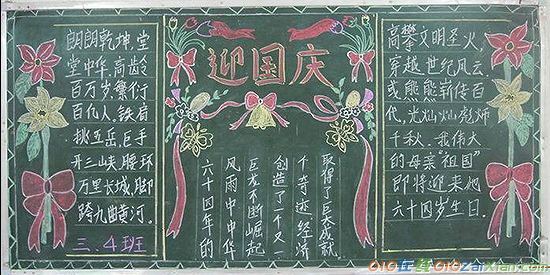 朗朗乾坤,堂
堂中华,高龄
百万岁,繁衍
百亿人,铁肩
挑五岳,巨手
开三峡,腰环
万里长城,脚
跨九曲黄河。
三.4班
迎国庆
六十四年的
风雨中中华
巨龙不断崛起
创造了一个又
个奇迹,经济
取得了巨大成就.
高攀文明圣火,
穿越世纪风云.
或熊熊薪传百
代,光灿灿彪炳
千秋.我伟大
的母亲"祖国"
即将迎来他
六十四岁生日.
010在线 010ZaiXian.com